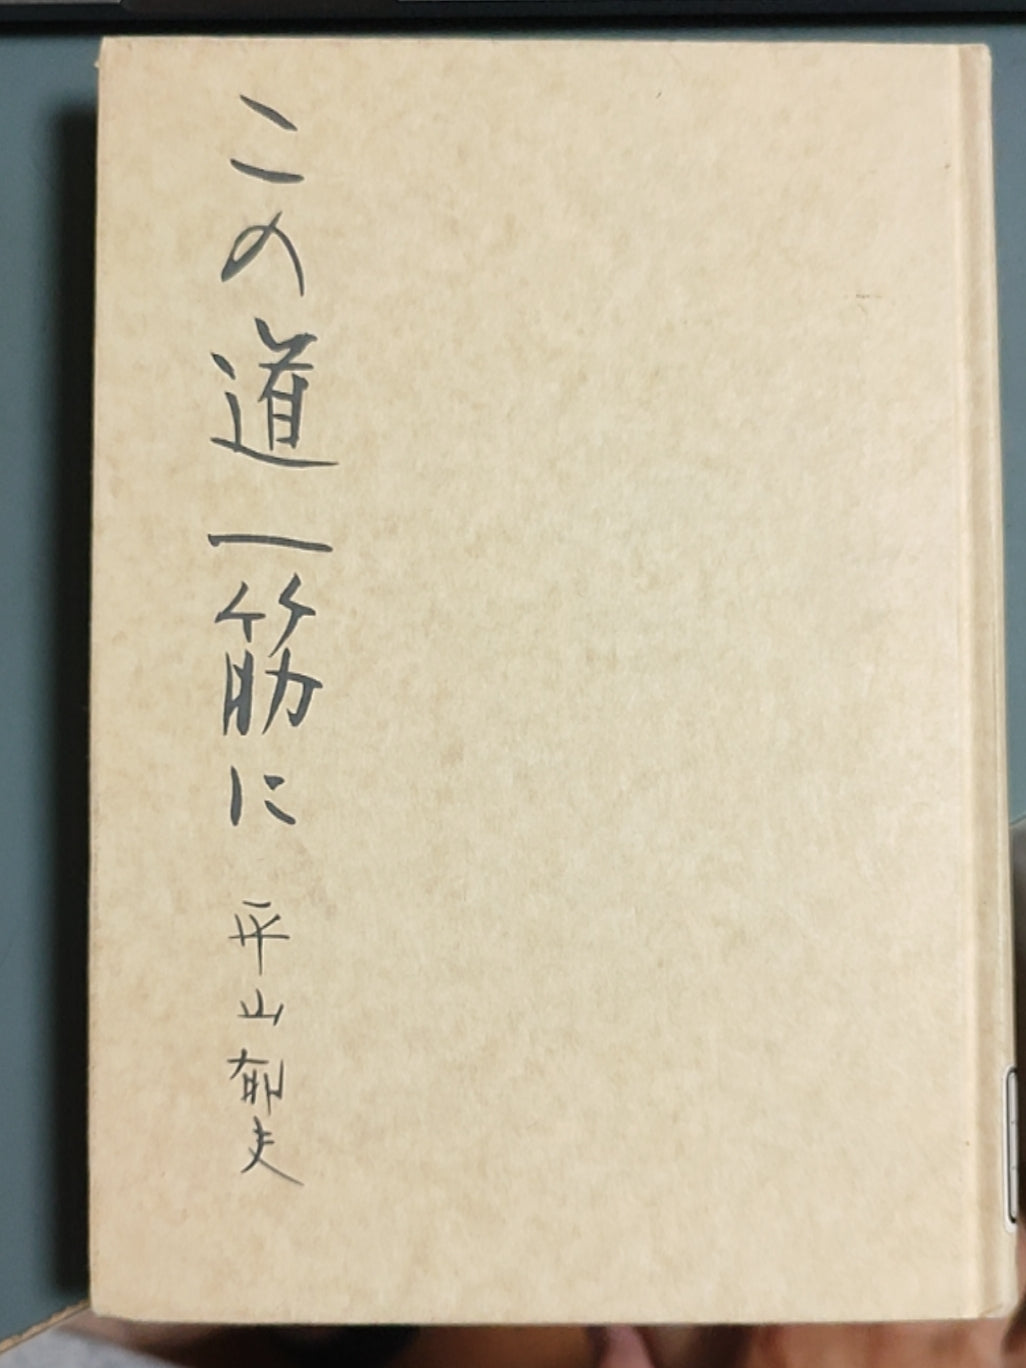 この道一筋に
平山郁夫